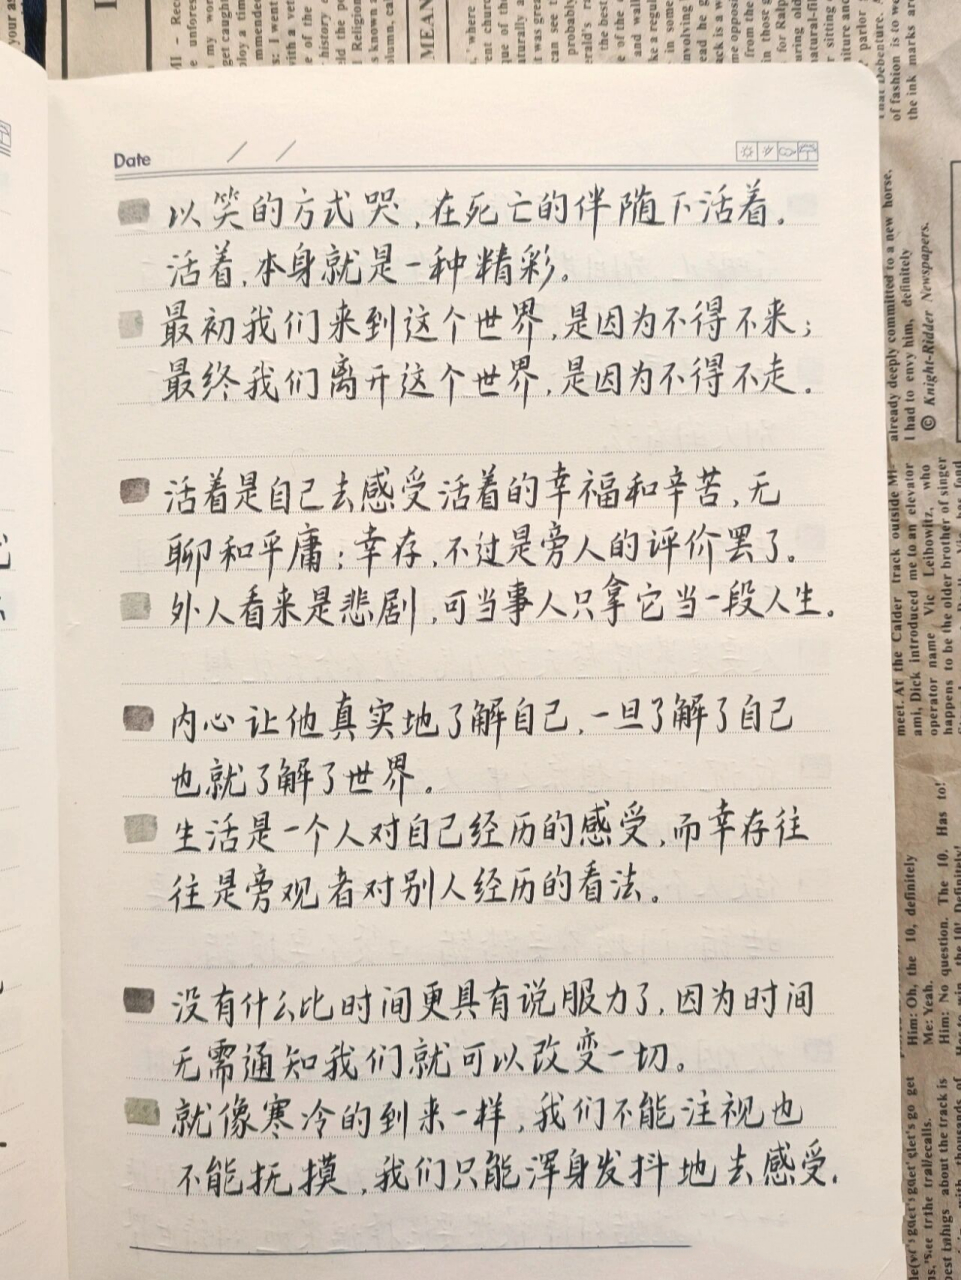 Date / /
以笑的方式哭,在死亡的伴随下活着。
活着,本身就是一种精彩。
最初我们来到这个世界,是因为不得不来;
最终我们离开这个世界,是因为不得不走.
活着是自己去感受活着的幸福和辛苦,无
聊和平庸;幸存,不过是旁人的评价罢了。
外人看来是悲剧,可当事人只拿它当一段人生.
内心让他真实地了解自己,一旦了解了自己
也就了解了世界。
生活是一个人对自己经历的感受,而幸存往
往是旁观者对别人经历的看法。
没有什么比时间更具有说服力了,因为时间
无需通知我们就可以改变一切。
就像寒冷的到来一样,我们不能注视也
不能抚摸,我们只能浑身发抖地去感受.
MEAN
already deeply committed to a new horse,
I had to envy him, definitely
© Knight-Ridder Newspapers.
meet. At the Calder track outside Mi-
ami, Dick introduced me to an elevator
operator name Vic Leibowitz, who
happens to be the older brother of singer
Him: Oh, the 10, definitely
Me: Yeah.
Him: No question. The 10. Has to!